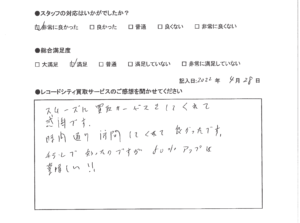 ●スタッフの対応はいかがでしたか？
☑非常に良かった □良かった □普通 □良くない □非常に良くない
●総合満足度
□大満足 ☑満足 □普通 □満足していない □非常に満足していない
記入日:202 年 4月28日
●レコードシティ買取サービスのご感想を聞かせてください
スムーズに買取サービスをしてくれて
感謝です。
時間通り訪問してくれて良かったです。
50%アップは
素晴しい!!